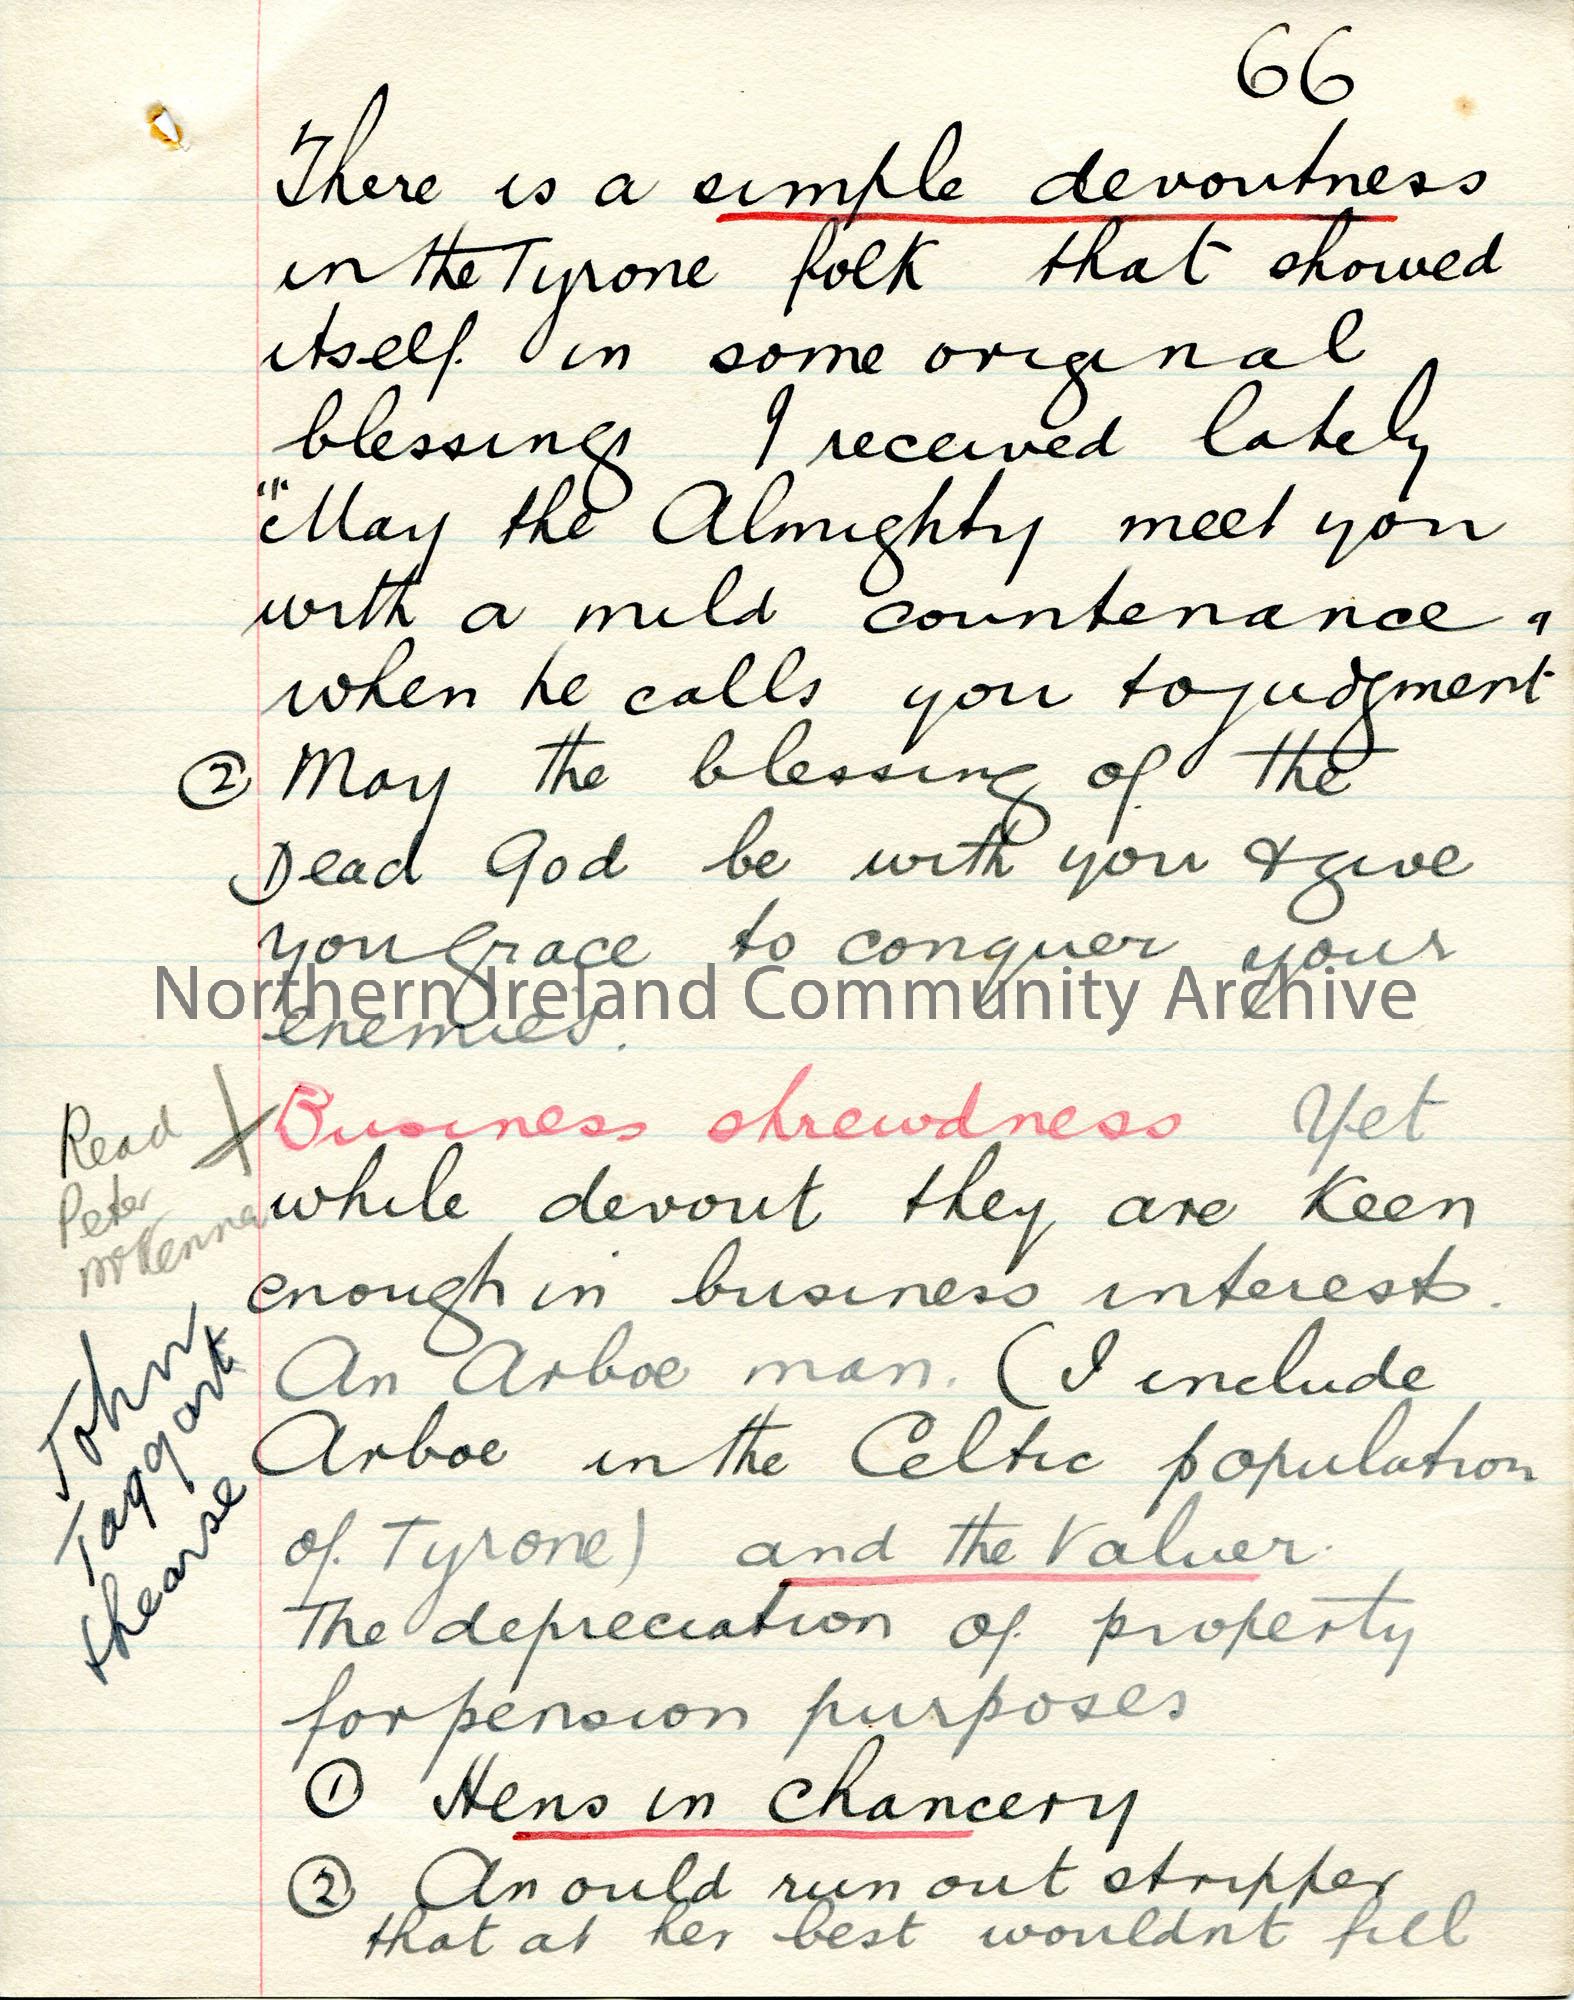 66
There is a simple devoutness
in the Tyrone folk that showed
itself in some original
blessings I received lately
"May the Almighty meet you
with a mild countenance,
when he calls you to judgment
② May the blessing of the
Dead God be with you & give
you grace to conquer your
enemies.
Northern Ireland Community Archive
Business shrewdness Yet
while devout they are keen
enough in business interests.
An Arboe man. (I include
Arboe in the Celtic population
of Tyrone) and the Valuer.
The depreciation of property
for pension purposes
① Hens in chancery
② An ould run out stripper
that at her best wouldn't fill
Read X
Peter
McKenna
John
Taggart
hearse